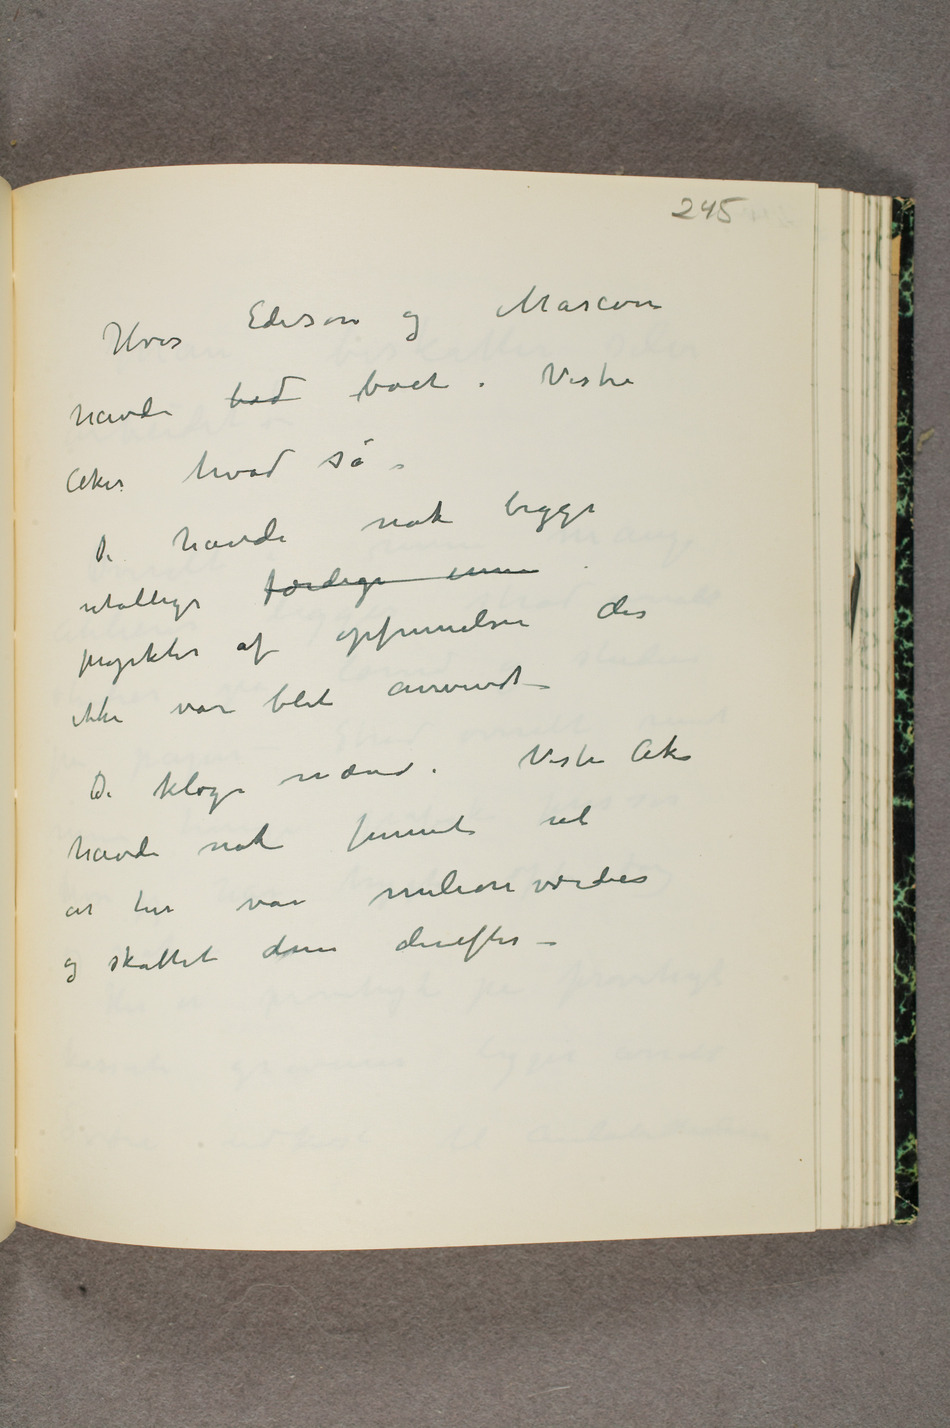 245
Hvis Edison og Marconi
havde bod boet i Vestre
Aker hvad så –
De havde nok begge
utallige færdige
projekter af opfinnelser der
ikke var blet anvendt –
De kloge mænd i Vestre Aker
havde nok funnet ud
at her var milionværdier
og skattet dem derefter –